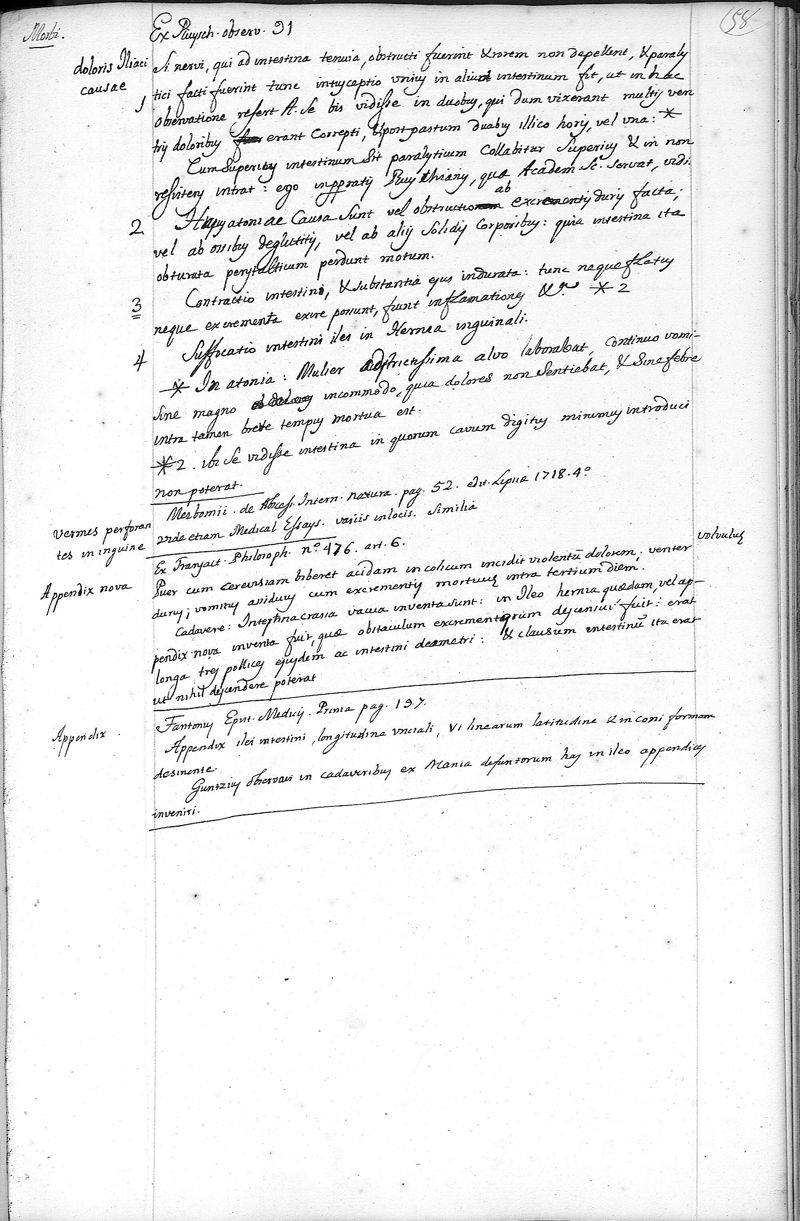 Morbi.
58
Ex Ruysch. observ. 91
doloris Iliaci
causae
1
Si nervi, qui ad intestina tenuia, obstructi fuerint & rorem non depellent, & paraly
tici facti fuerint tunc intusceptio unius in aliud intestinum fit, ut in hac
observatione refert A. Se bis vidisse in duobus, qui dum vixerant multis ven
tris doloribus erant correpti, & post pastum duabus illico horis, vel una: *
Cum superius intestinum sit paralyticum collabitur superius & in non
resistens intrat: ego in pparatis Ruyschianis, quae Academ. Sc. servat, vidi.
2
Hujus atoniae causa sunt vel obstructio ab excrementis duris facta;
vel ab ossibus deglutitis, vel ab aliis solidis corporibus: quia intestina ita
obturata perystalticum perdunt motum.
3
Contractio intestini, & substantia ejus indurata: tunc neque flatus
neque excrementa exire possunt, fiunt inflamationes &c. * 2
4
Suffocatio intestini ilei in Hernia inguinali.
* In atonia: Mulier adstrictissima alvo laborabat, continuo vomi-
sine magno incommodo, quia dolores non sentiebat, & sine febre
intra tamen breve tempus mortua est.
* 2. ibi se vidisse intestina in quorum cavum digitus minimus introduci
non poterat.
Vermes perforan
tes in inguine
Meibomii. de Abscess. Intern. natura. pag. 52. edit. Lipsiae 1718. 4o
unde etiam Medical Essays. variis in locis. Similia
Appendix nova
Ex Transact. Philosoph. no. 476. art. 6.
volvulus
Puer cum cerevisiam biberet acidam in colicum incidit violentum dolorem; venter
durus; vomitus assiduus cum excrementis mortuus intra tertium diem.
Cadavere: Intestina crassa vacua inventa sunt: in Ileo hernia quaedam, vel ap-
pendix nova inventa fuit, quae obstaculum excrementorum descensui fuit: erat
longa tres pollices ejusdem ac intestini diametri: & clausum intestinum ita erat
ut nihil descendere poterat
Appendix
Fantonus Epist. Medicis. Prima pag. 197.
Appendix ilei intestini, longitudine unciali, VI linearum latitudine & in coni formam
desinente.
Guntzius observavi in cadaveribus ex Mania defuntorum has in ileo appendices
inveniri.